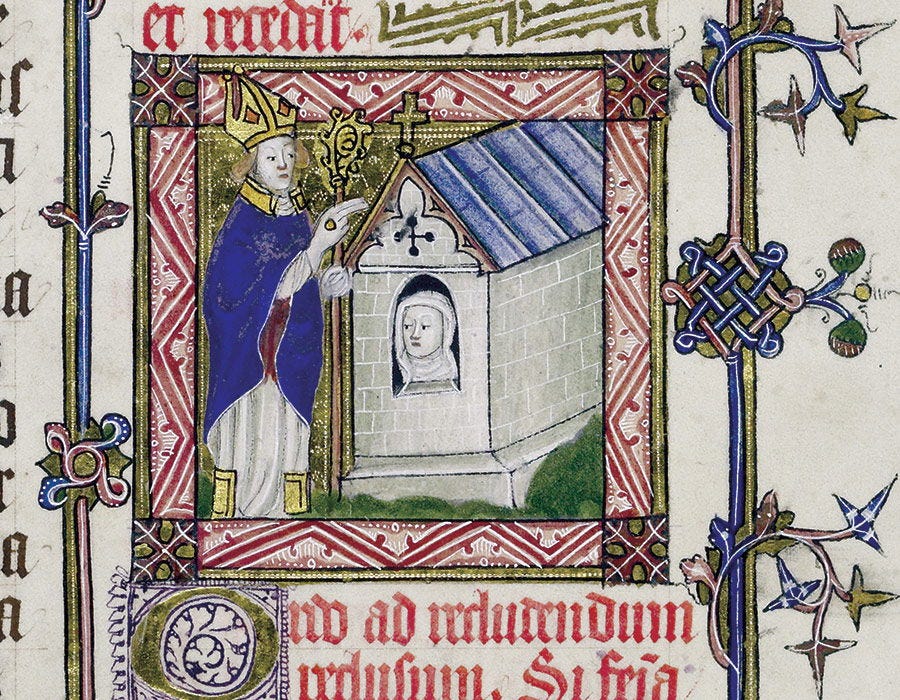 et recedāt.
Ordo ad recludendum
reclusum. Si feīa